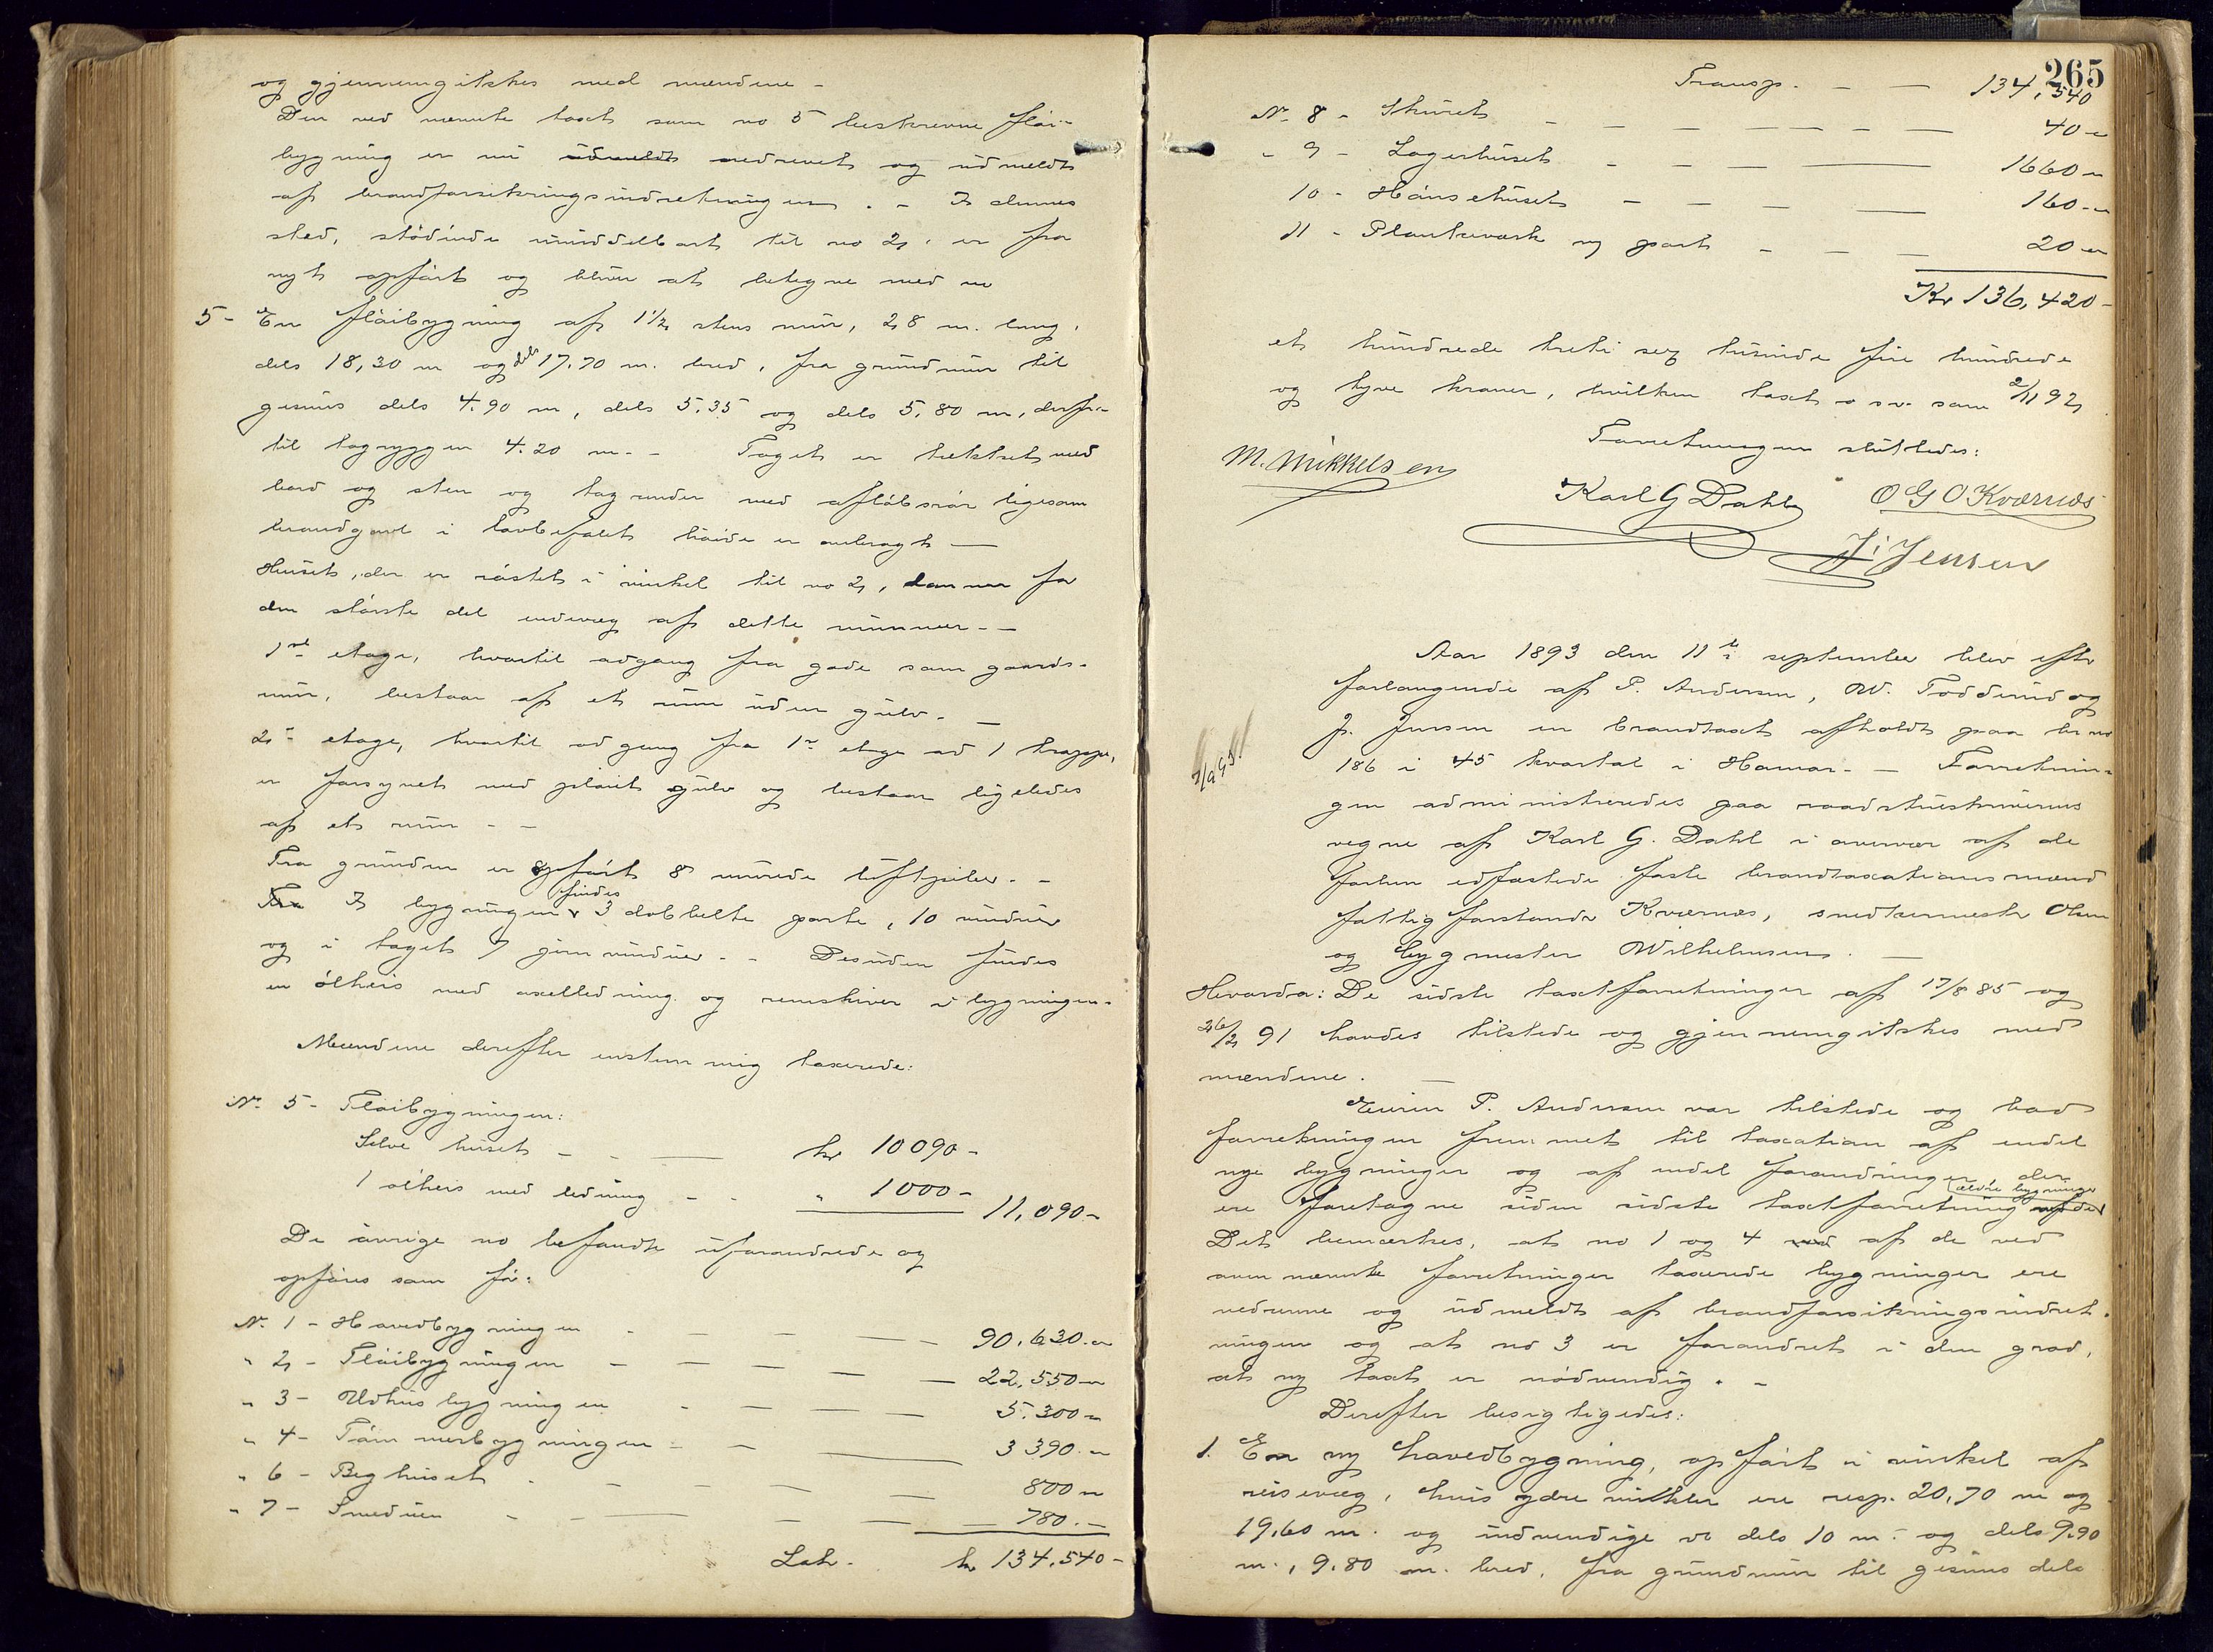 og gjennemgikkes med mændene -
Den ved nævnte taxt som no 5 beskrevne fløi-
bygning er nu udmeldt nedrevet og udmeldt
af brandforsikringsindretningen. - I dennes
sted, stødende umiddelbart til no 2, er fra
nyt opført og bliver at betegne med no
5 - En fløibygning af 1½ stens mur, 28 m. lang,
dels 18,30 m og dels 17.70 m. bred, fra grundmur til
gesims dels 4.90 m, dels 5.35 og dels 5.80 m, derfra
til tagryggen 4.20 m. - Taget er tækket med
bord og sten og tagrender med afløbsrør ligesom
brandgavl i lovbefalet høide er anbragt —
Huset, der er reistet i vinkel til no 2, danner for
den største del endevæg af dette nummer. -
1ste etage, hvortil adgang fra gade som gaards-
rum, bestaar af et rum uden gulv. —
2den etage, hvortil adgang fra 1ste etage ad 1 trappe,
er forsynet med pløiet gulv og bestaar ligeledes
af et rum - -
Fra grunden er opført 8 murede luftpiber. -
Fra I bygningen findes 3 dobbelte porte, 10 vinduer
og i taget 7 jernvinduer. - Desuden findes
en ølheis med axelledning og remskiver i bygningen.
Mændene derefter enstemmig taxerede:
No. 5 - Fløibygningen:
Selve huset - - — kr 10090 -
1 ølheis med ledning - - " 1000 - 11,090 -
De øvrige no befandtes uforandrede og
opføres som før:
No. 1 - Hovedbygningen - - - — 90,630. "
" 2 - Fløibygningen - - - - — 22,550 "
" 3 - Udhusbygningen - - - — 5.300 "
" 4 - Tømmerbygningen - - — 3390. "
" 6 - Beghuset - - - - — 800 "
" 7 - Smedien - - — - — 780. -
Lah. kr 134.540 -
265
Transp. - — 134,540
No. 8 - Skuret - - - - - - — 40 "
" 9 - Lagerhuset - - - — 1660 "
10 - Hønsehuset - - - — 160 - "
11 - Plankeværk og port - - - 20 "
Kr 136,420 -
et hundrede treti sex tusinde fire hundrede
og tyve kroner, hvilken taxt o sv. som 2/11 92
Forretningen sluttedes:
M. Mikkelsen
Karl G Dahl O G O Kværnæs
J. Jensen
Aar 1893 den 11te september blev efter
forlangende af P. Andersen, W. Todderud og
J. Jensen en brandtaxt afholdt paa br no
186 i 45 kvartal i Hamar. — Forretnin-
gen administreredes paa raadstueskriverens
vegne af Karl G. Dahl i overvær af de
forhen edfæstede faste brandtaxationsmænd
fattigforstander Kværnæs, snedkermester Olsen
og bygmester Wilhelmsen. —
Hvorda: De sidste taxtforretninger af 17/8 85 og
26/2 91 havdes tilstede og gjennemgikkes med
mændene. —
Eieren P. Andersen var tilstede og bad
forretningen fremmet til taxation af endel
nye bygninger og af endel forandringer der
ere foretagne siden sidste taxtforretning af de ældre bygninger
Det bemærkes, at no 1 og 4 ved af de ved
ovennævnte forretninger taxerede bygninger ere
nedrevne og udmeldt af brandforsikringsindret-
ningen og at no 3 er forandret i den grad,
at ny taxt er nødvendig. -
Derefter besigtigedes:
1. En ny hovedbygning, opført i vinkel af
reisevæg, hvis ydre vinkler ere resp. 20,70 m og
19,60 m. og indvendige do dels 10 m. og dels 9.90
m., 9.80 m. bred, fra grundmur til gesims dels